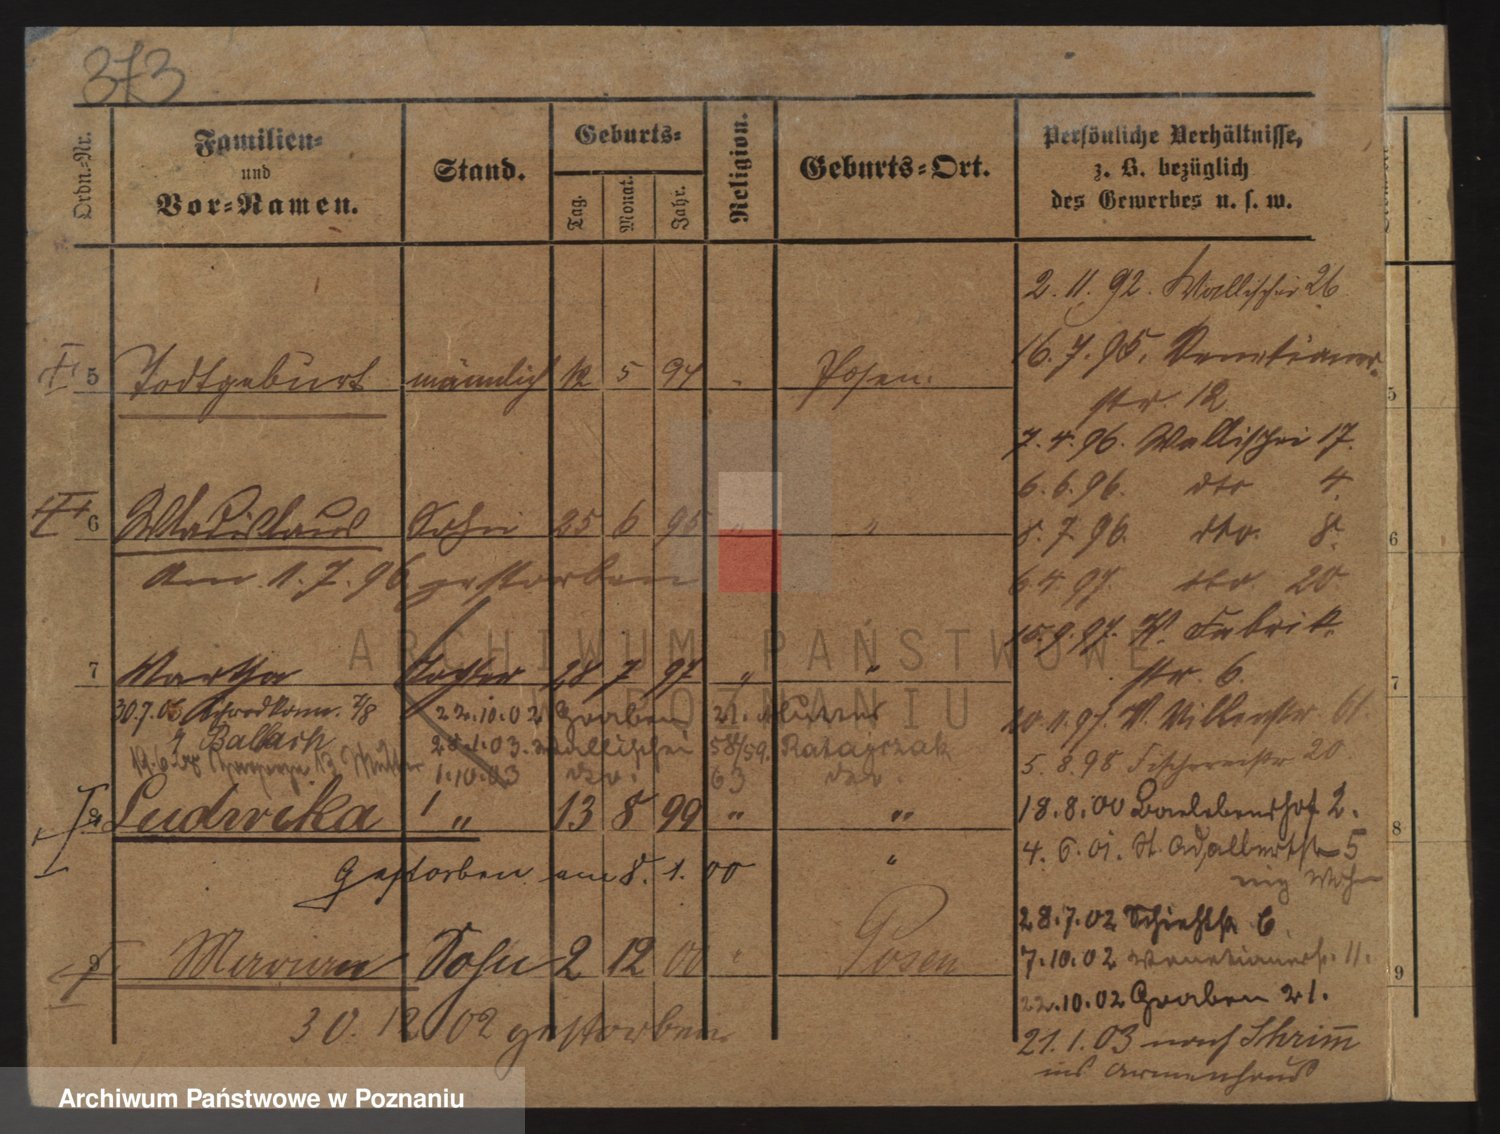 373
Ordn.-Nr.
Familien-
und
Vor-Namen.
Stand.
Geburts-
Tag.
Monat.
Jahr.
Religion.
Geburts-Ort.
Persönliche Verhältnisse,
z. B. bezüglich
des Gewerbes u. s. w.
2. 11. 92. Wallischei 26
5 Todtgeburt männlich 12 5 94 Posen.
16. 7. 95. Venetianer-
str. 12
7. 4. 96. Wallischei 17.
6. 6. 96. dto 4.
6 Wladislaus Sohn 25 6 95 " "
8. 7. 96. dto. 8.
am 1. 7. 96 gestorben
6. 4. 97. dto. 20
15. 9. 97. V. Fabrik
str. 6.
7 Martha Tochter 28 7 97 " "
30.7.03 7/8
22.10.02 Graben 21.
10. 11. 97. V. Villenstr. 61.
28.1.03. Wallischei 58/59. Ratajczak
5. 8. 98 Fischereistr 20
19.6. Mutter
1.10.03 dto. 63 dto.
8 Ludwika " 13 8 99 " "
18. 8. 00 2.
4. 6. 01. St. Adalbertstr 5
Gestorben am 8. 1. 00 "
28. 7. 02 Schiehtstr 6.
9 Marian Sohn 2 12 00 " Posen
7. 10. 02 Venetianerstr. 11.
22. 10. 02 Graben 21.
30. 12 02 gestorben
21. 1. 03 nach Shrimm
ins Armenhaus
5
6
7
8
9
ARCHIWUM PAŃSTWOWE
W POZNANIU
Archiwum Państwowe w Poznaniu